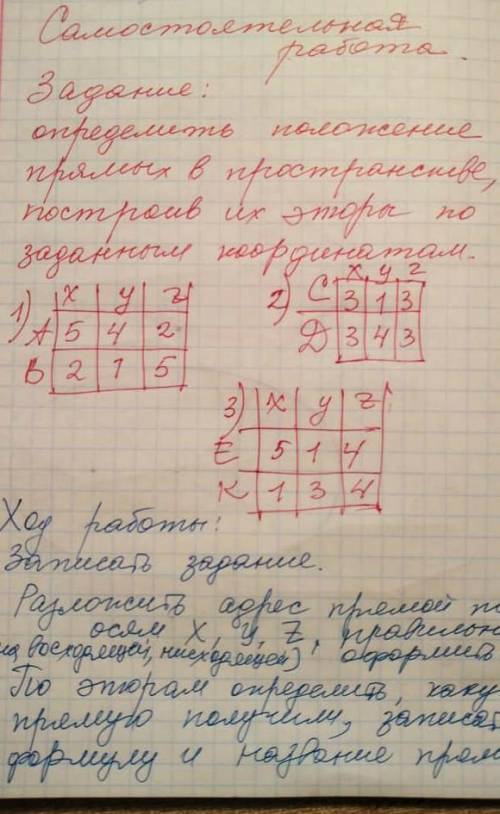 Самостоятельная
работа.
Задание:
определить положение
прямых в пространстве,
построив их эпоры по
заданным координатам.
1) x y z
A 5 4 2
B 2 1 5
2) x y z
C 3 1 3
Д 3 4 3
3) x y z
E 5 1 4
К 1 3 4
Ход работы:
Записать задание.
Разложить адрес прямой по
осям X, Y, Z, правильно
восходящей, нисходящей) оформить
По эпюрам определить, каку
прямую получим, записат
формулу и название прям